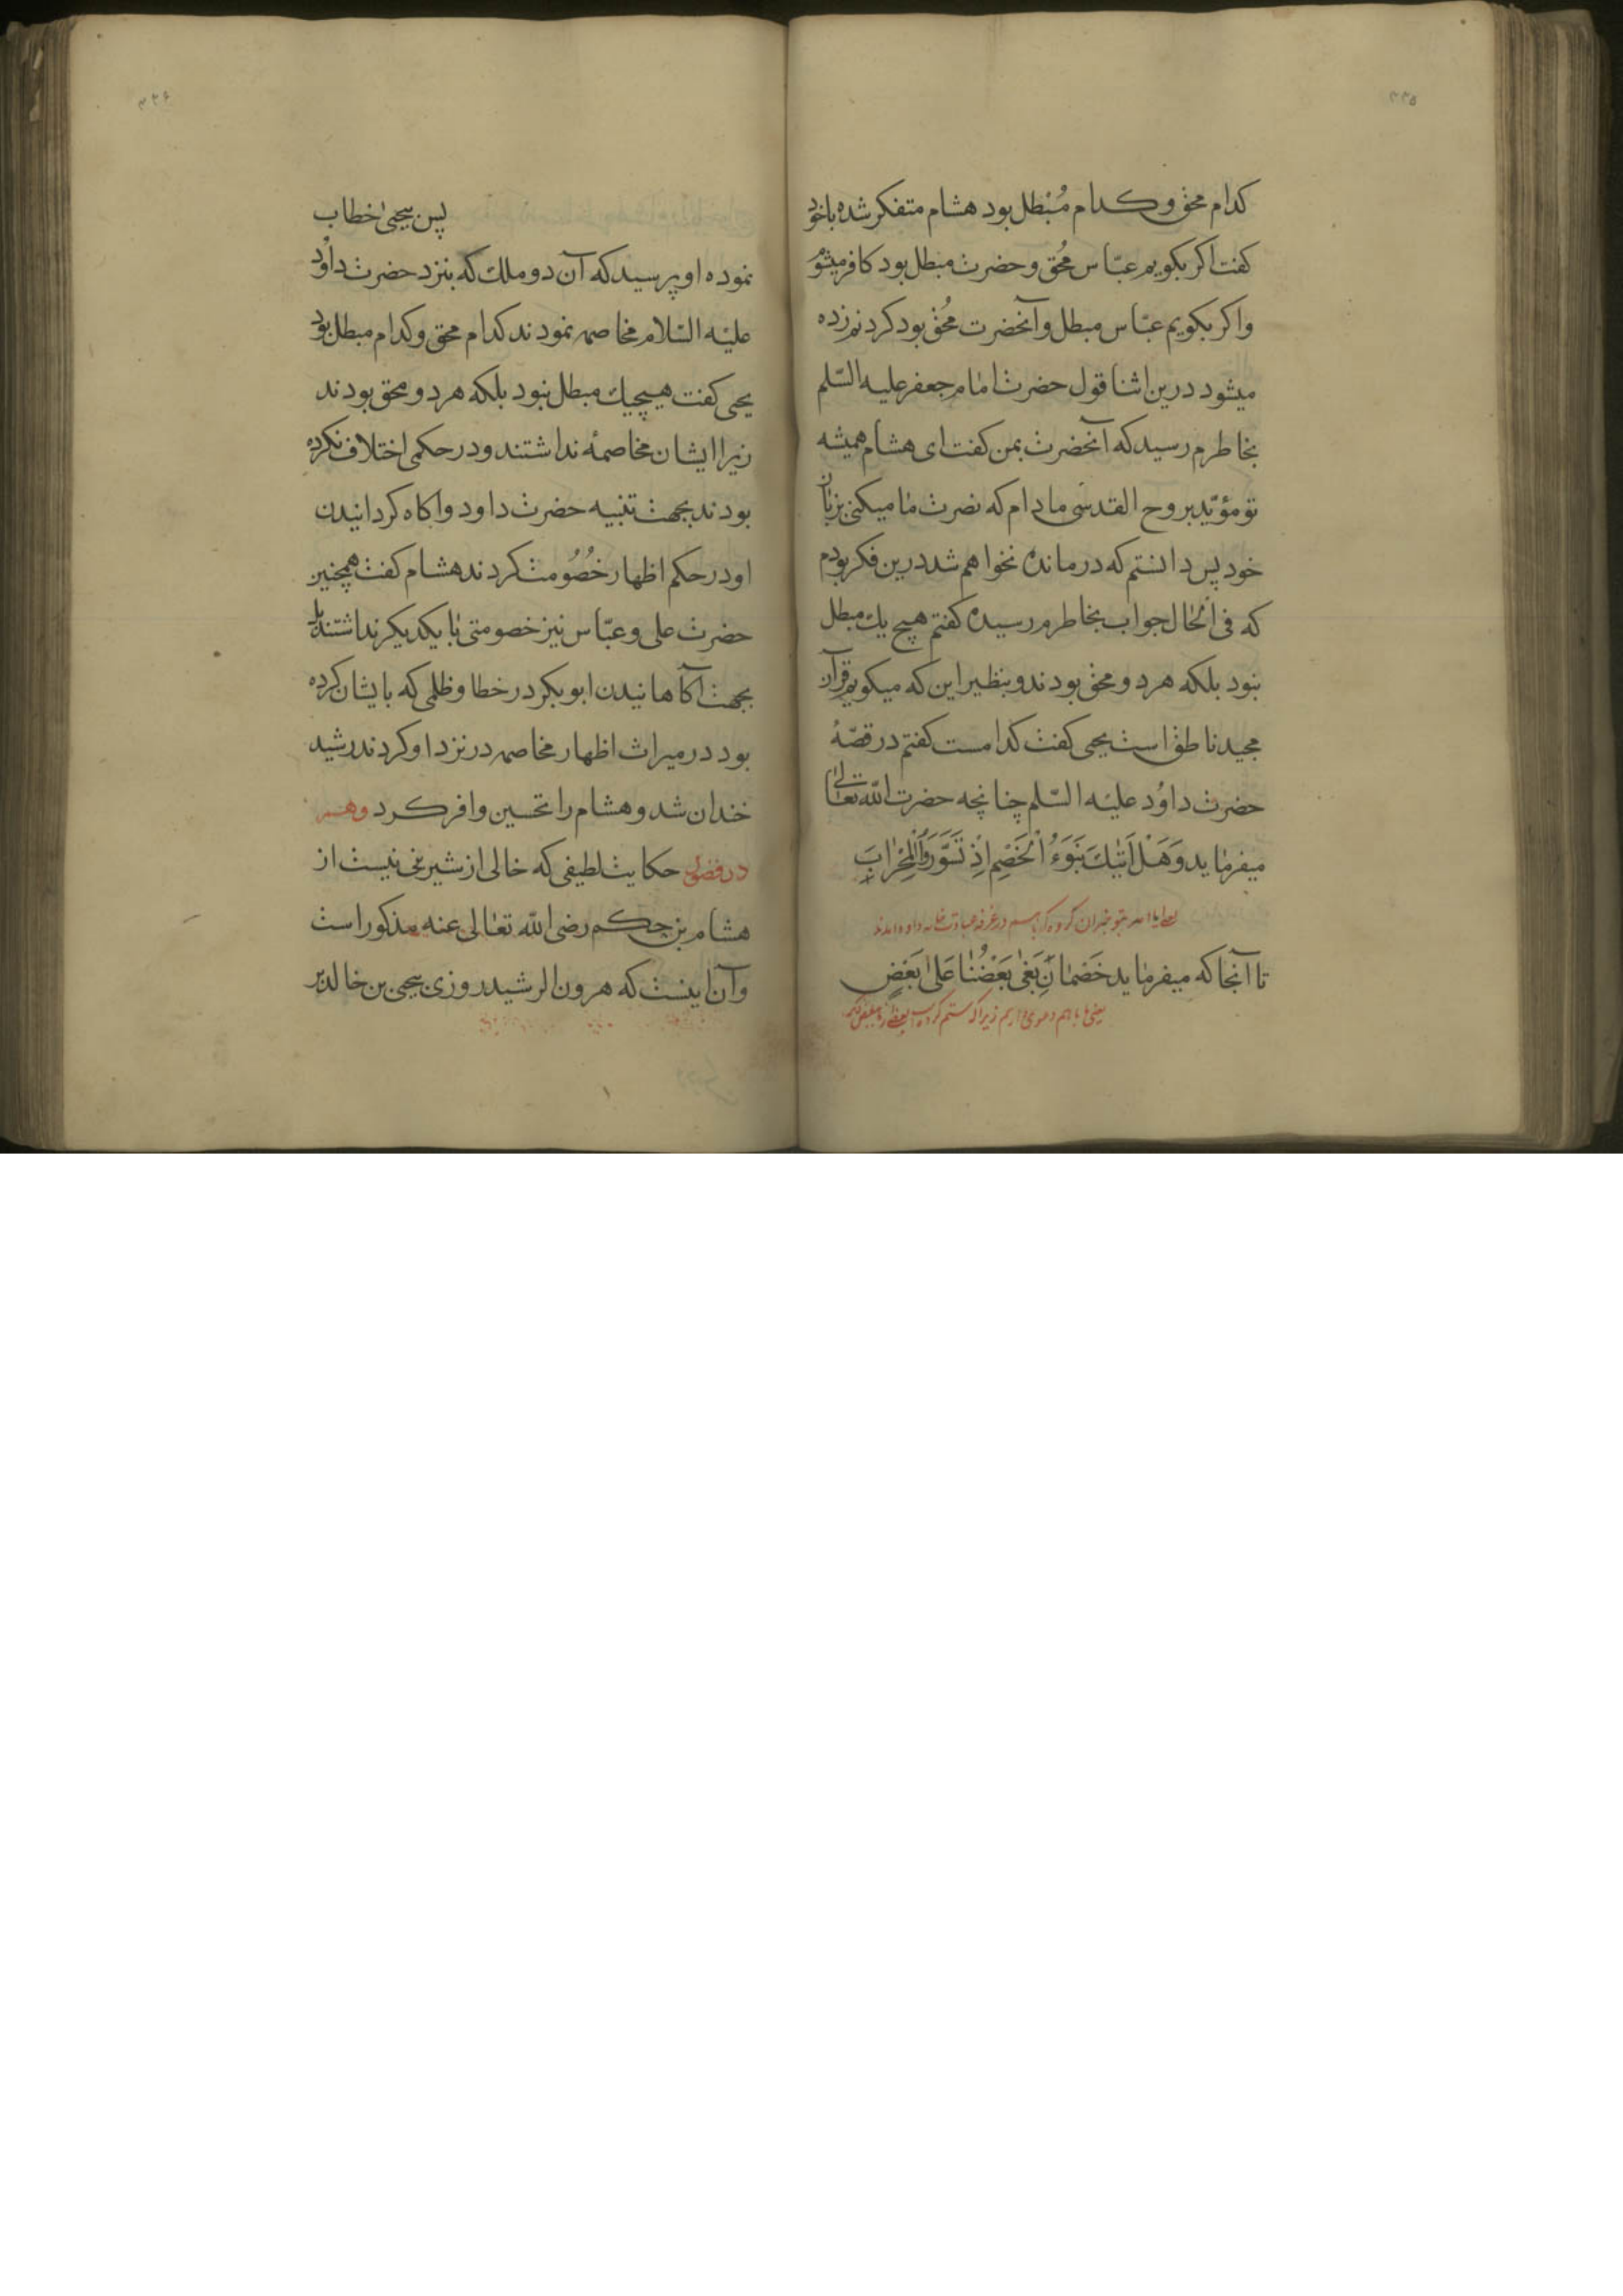 ۳۳۵
كدام محق وكدام مُبْطل بود هشام متفكر شده باخود
كفت اكر بكويم عبّاس مُحق و حضرت مبطل بود كافر ميشوم
واكر بكويم عبّاس مبطل وآنحضرت مُحق بود كردنم زده
ميشود درين اثنا قول حضرت امام جعفر عليه السّلم
بخاطرم رسيد كه آنحضرت بمن كفت اى هشام هميشه
تو مؤيّد بروح القدسى مادام كه نصرت ما ميكنى بزبان
خود پس دانستم كه درمانده نخواهم شد درين فكر بودم
كه فى الحال جواب بخاطرم رسيده كفتم هيچ يك مبطل
نبود بلكه هردو محق بودند و بنظير اين كه ميكويم قرآن
مجيد ناطق است يحيى كفت كدامست كفتم در قصّهٔ
حضرت داوُد عليه السّلم چنانچه حضرت اللّه تعالى
ميفرمايد وَهَلْ اَتٰيكَ نَبَوءُ الْخَصْمِ اِذْ تَسَوَّرُوا الْمِحْرٰابَ
در غرفه عبادت خانه داود آمدند
تا آنجا كه ميفرمايد خَصْمانِ بَغٰى بَعْضُنٰا عَلىٰ بَعْضٍ
يعنى ما باهم دعوى داريم زيرا كه ستم كرده است بعضى از ما
۳۳۶
پس يحيىٰ خطاب
نموده او پرسيد كه آن دو ملك كه بنزد حضرت داوُد
عليه السّلام مخاصمه نمودند كدام محق وكدام مبطل بود
يحيى كفت هيچيك مبطل نبود بلكه هردو محق بودند
زيرا ايشان مخاصمهٔ نداشتند و در حكمى اختلاف نكرده
بودند بجهت تنبيه حضرت داود واكاه كردانيدن
او در حكم اظهار خُصُومت كردند هشام كفت همچنين
حضرت على و عبّاس نيز خصومتى با يكديكر نداشتند بلكه
بجهت آكاهانيدن ابوبكر در خطا وظلمى كه بايشان كرده
بود در ميراث اظهار مخاصمه در نزد او كردند رشيد
خندان شد و هشام را تحسين وافر كرد وهم
در فصول حكايت لطيفى كه خالى از شيرينى نيست از
هشام بن حكم رضى اللّه تعالى عنه مذكور است
وآن اينست كه هرون الرشيد روزى يحيى بن خالد بر